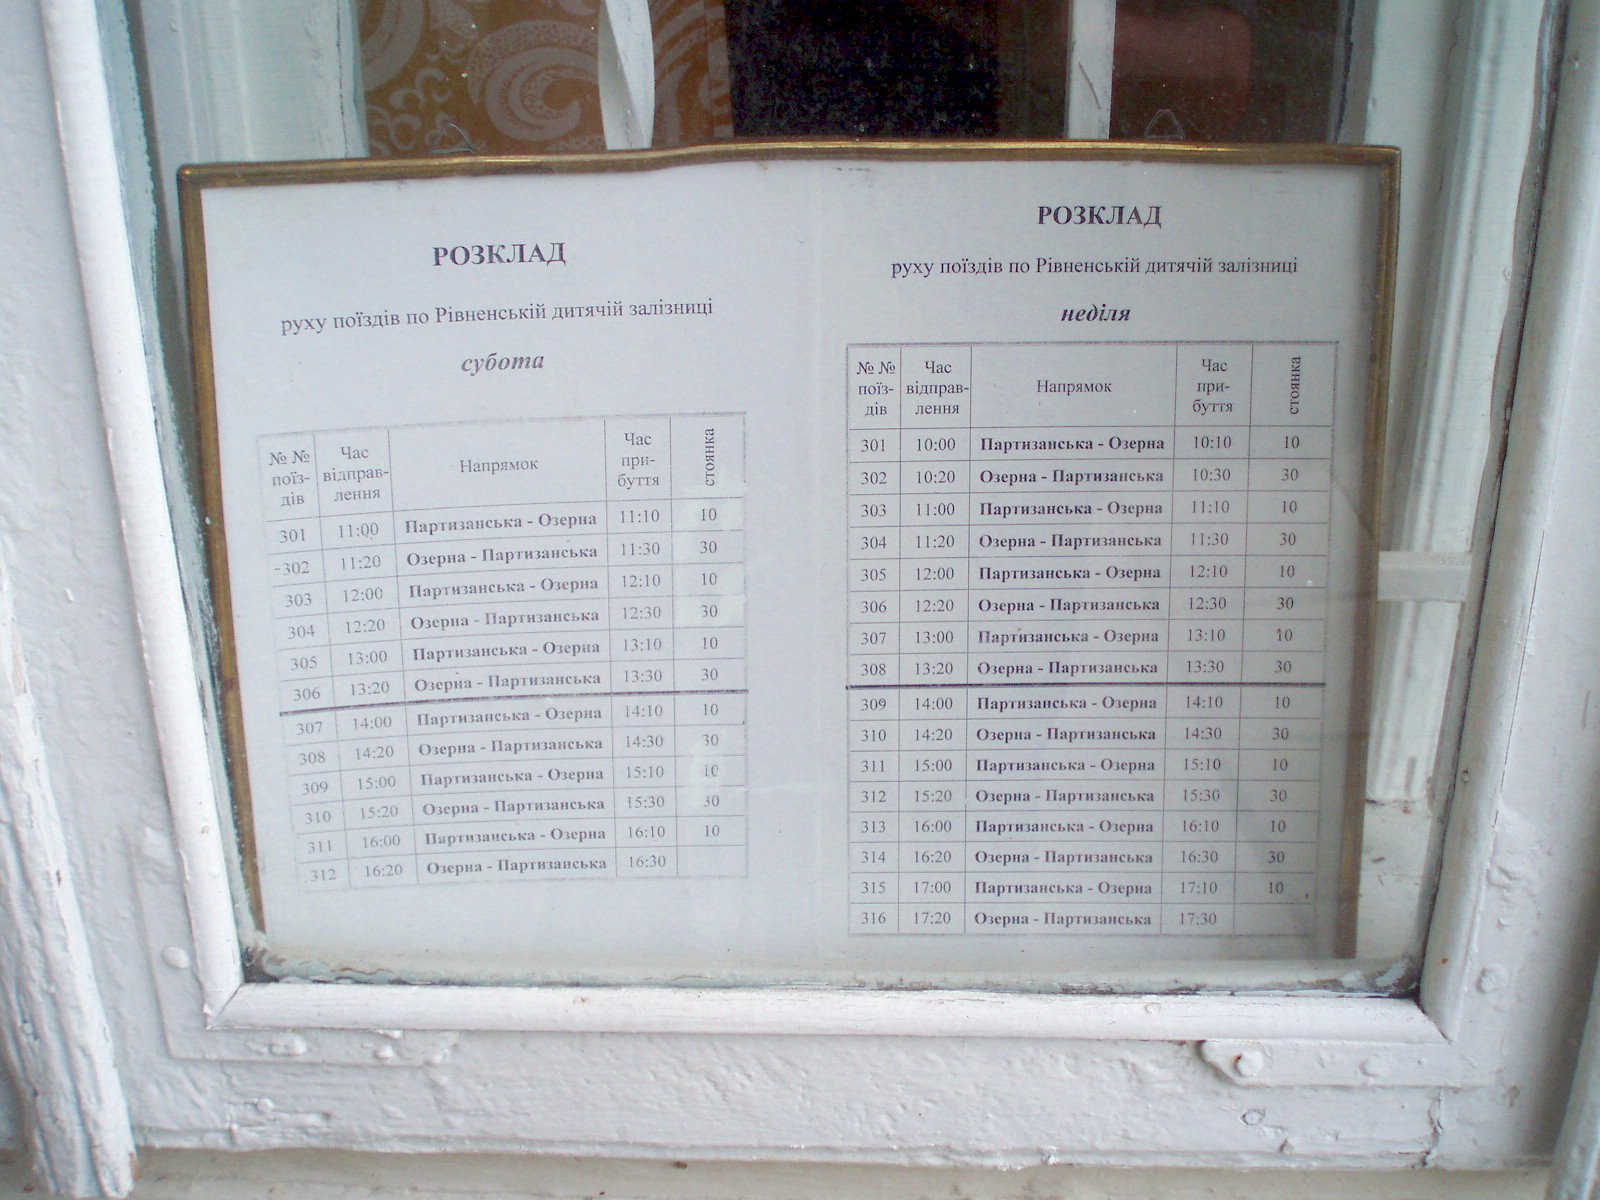 РОЗКЛАД
руху поїздів по Рівненській дитячій залізниці
субота
№ № поїз-дів Час відправ-лення Напрямок Час при-буття стоянка
301 11:00 Партизанська - Озерна 11:10 10
302 11:20 Озерна - Партизанська 11:30 30
303 12:00 Партизанська - Озерна 12:10 10
304 12:20 Озерна - Партизанська 12:30 30
305 13:00 Партизанська - Озерна 13:10 10
306 13:20 Озерна - Партизанська 13:30 30
307 14:00 Партизанська - Озерна 14:10 10
308 14:20 Озерна - Партизанська 14:30 30
309 15:00 Партизанська - Озерна 15:10 10
310 15:20 Озерна - Партизанська 15:30 30
311 16:00 Партизанська - Озерна 16:10 10
312 16:20 Озерна - Партизанська 16:30
РОЗКЛАД
руху поїздів по Рівненській дитячій залізниці
неділя
№ № поїз-дів Час відправ-лення Напрямок Час при-буття стоянка
301 10:00 Партизанська - Озерна 10:10 10
302 10:20 Озерна - Партизанська 10:30 30
303 11:00 Партизанська - Озерна 11:10 10
304 11:20 Озерна - Партизанська 11:30 30
305 12:00 Партизанська - Озерна 12:10 10
306 12:20 Озерна - Партизанська 12:30 30
307 13:00 Партизанська - Озерна 13:10 10
308 13:20 Озерна - Партизанська 13:30 30
309 14:00 Партизанська - Озерна 14:10 10
310 14:20 Озерна - Партизанська 14:30 30
311 15:00 Партизанська - Озерна 15:10 10
312 15:20 Озерна - Партизанська 15:30 30
313 16:00 Партизанська - Озерна 16:10 10
314 16:20 Озерна - Партизанська 16:30 30
315 17:00 Партизанська - Озерна 17:10 10
316 17:20 Озерна - Партизанська 17:30